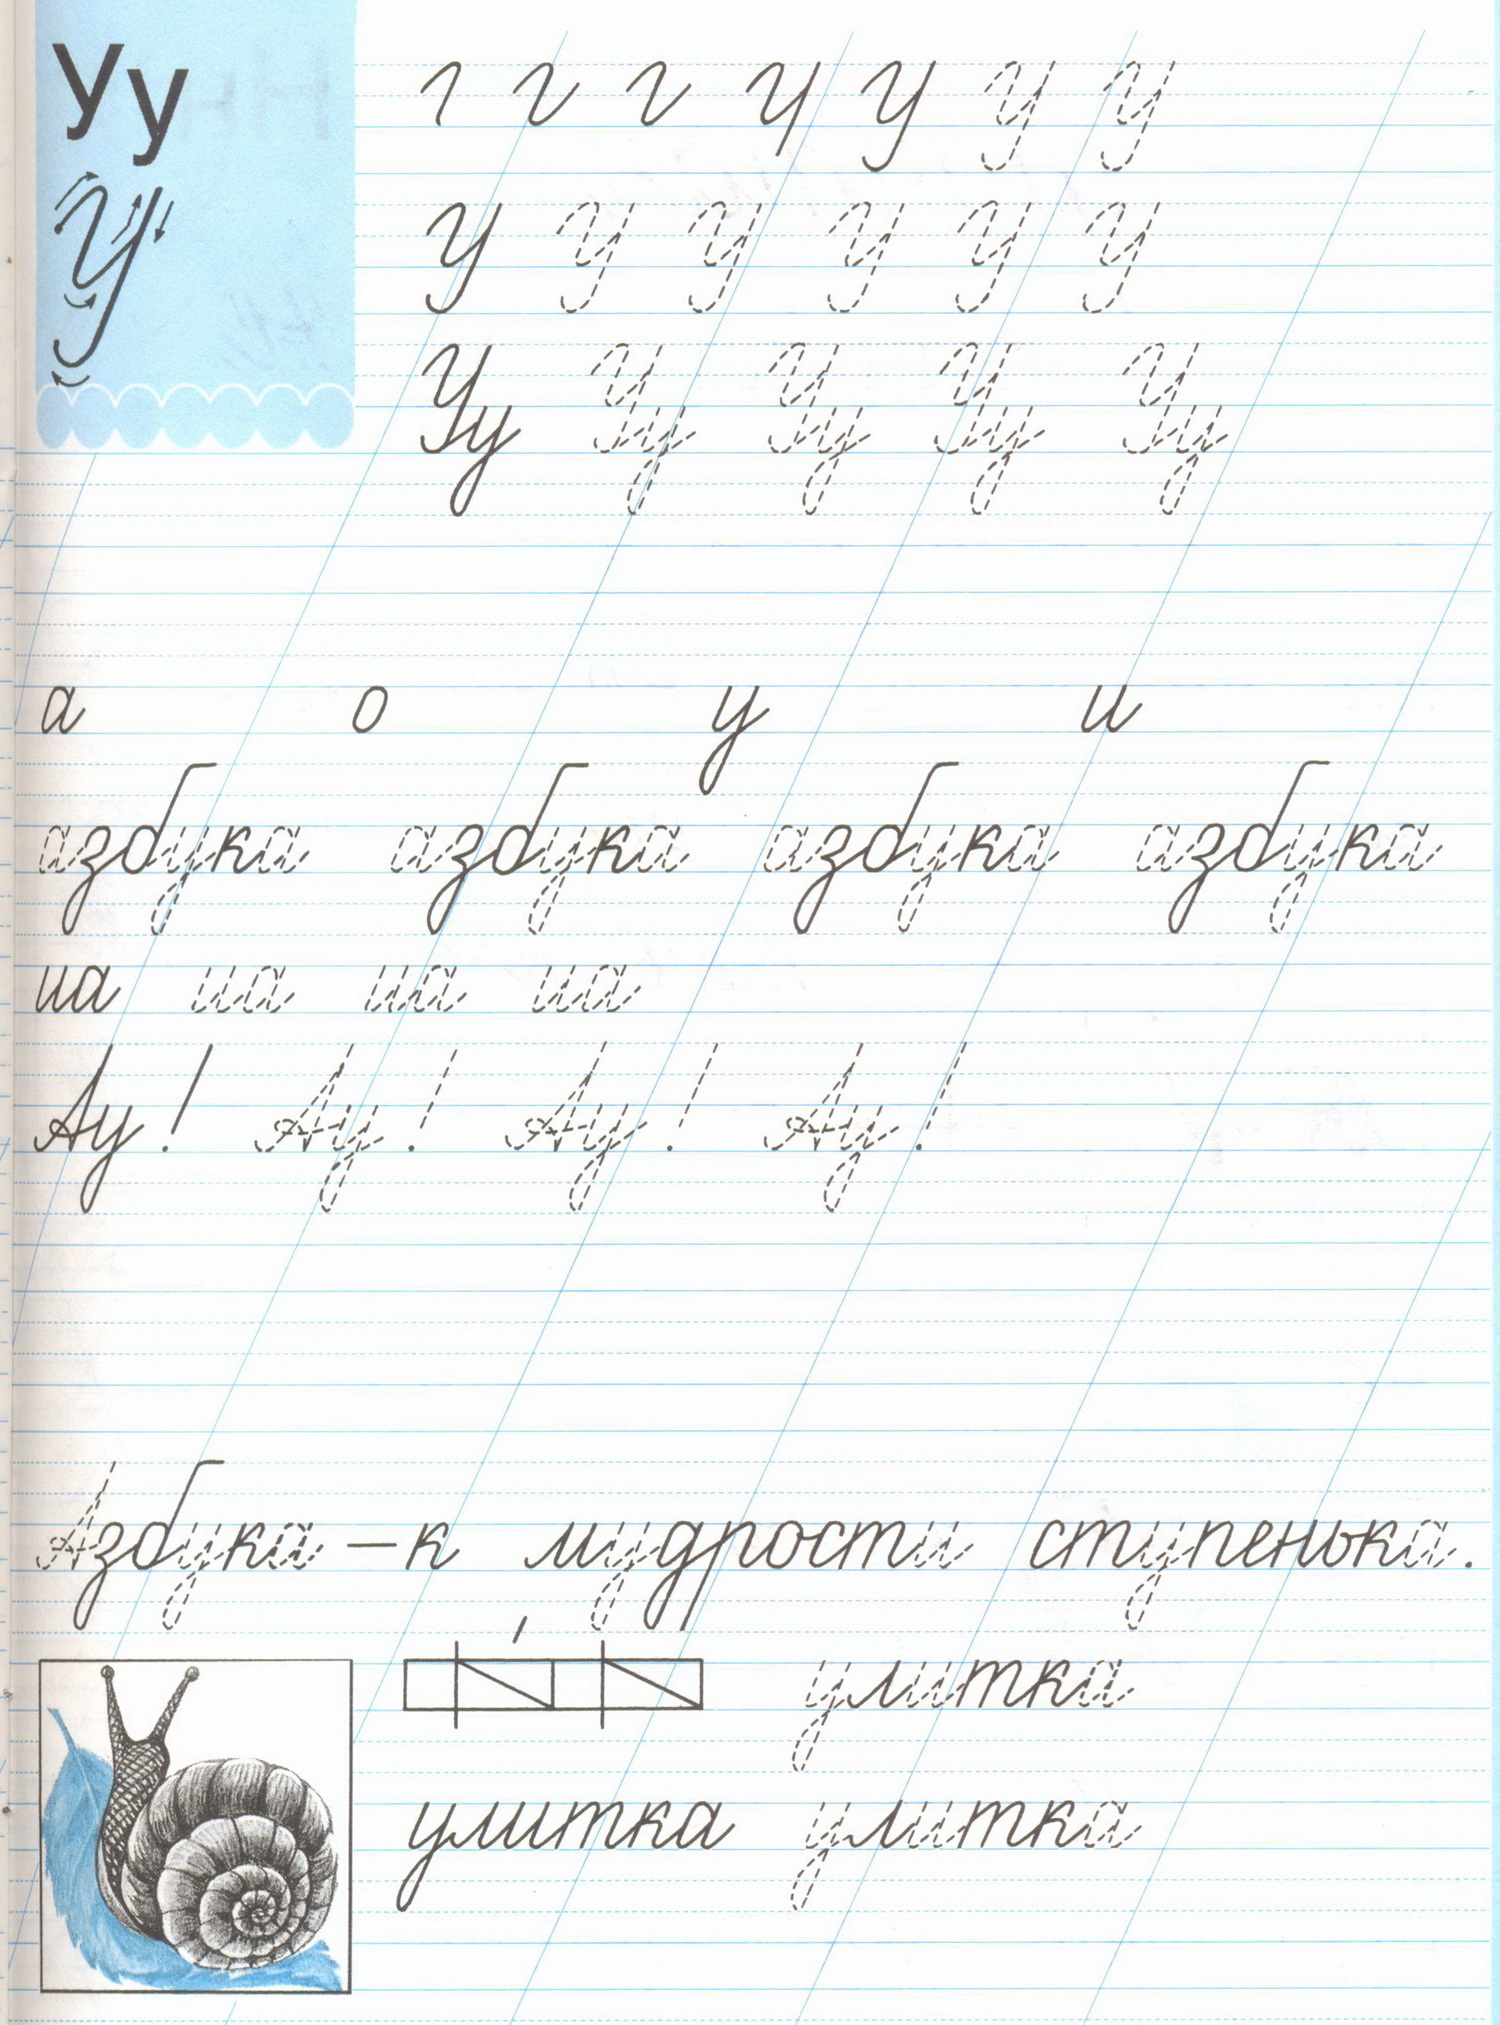 Уу
У
У У У У
У У У У У У
Уу Уу Уу Уу Уу
а о у и
азбука азбука азбука азбука
иа иа иа иа
Ау! Ау! Ау! Ау!
Азбука – к мудрости ступенька.
улитка
улитка улитка